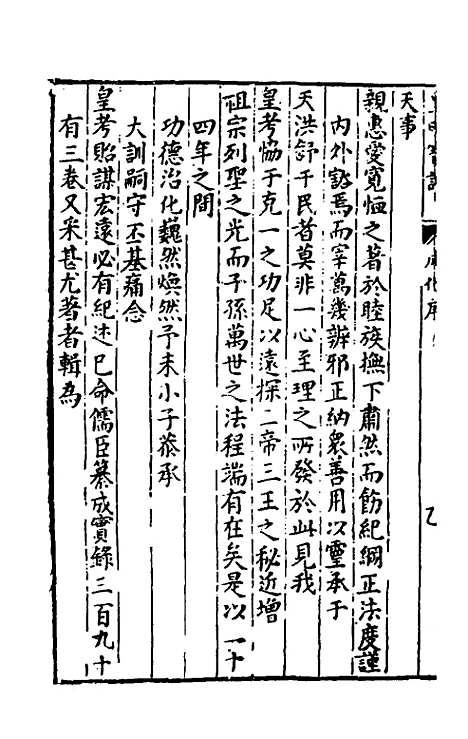 天事
親惠愛寬恤之著於睦族撫下肅然而飭紀綱正法度謹
内外諮焉而宰萬幾辨邪正納衆善用以靈承于
天洪舒于民者莫非一心至理之所發於此見我
皇考恊于克一之功足以遠探二帝三王之秘近增
祖宗列聖之光而子孫萬世之法程端有在矣是以一十
四年之間
功德治化巍然煥然予末小子恭承
大訓嗣守丕基痛念
皇考貽謀宏遠必有紀述已命儒臣纂成實錄三百九十
有三卷又采甚尤著者輯為